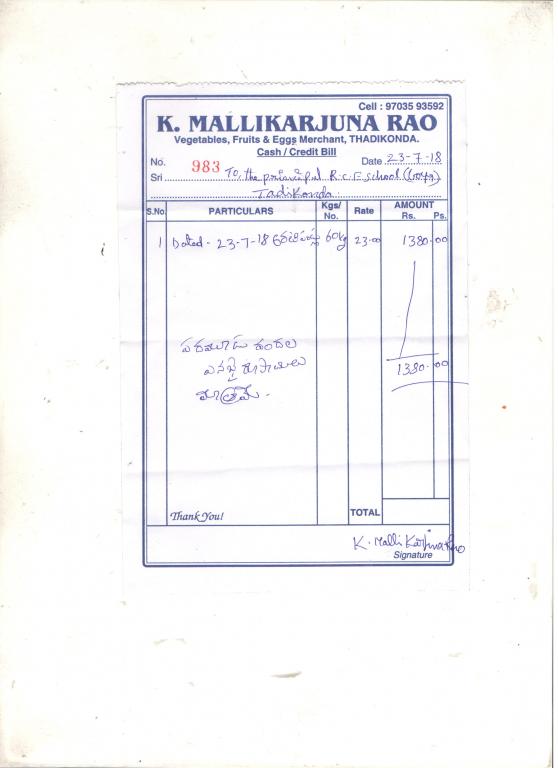 Cell : 97035 93592
K. MALLIKARJUNA RAO
Vegetables, Fruits & Eggs Merchant, THADIKONDA.
Cash / Credit Bill
No. 983 Date 23-7-18
Sri To, the principal R.C.E school (Boys)
Tadikonda.
S.No. PARTICULARS Kgs/ No. Rate AMOUNT Rs. Ps.
1 Dated - 23-7-18 60kg 23.00 1380.00
1380.00
రూపాయలు
మాత్రమే.
Thank You! TOTAL
K. Malli Karjuna Rao
Signature